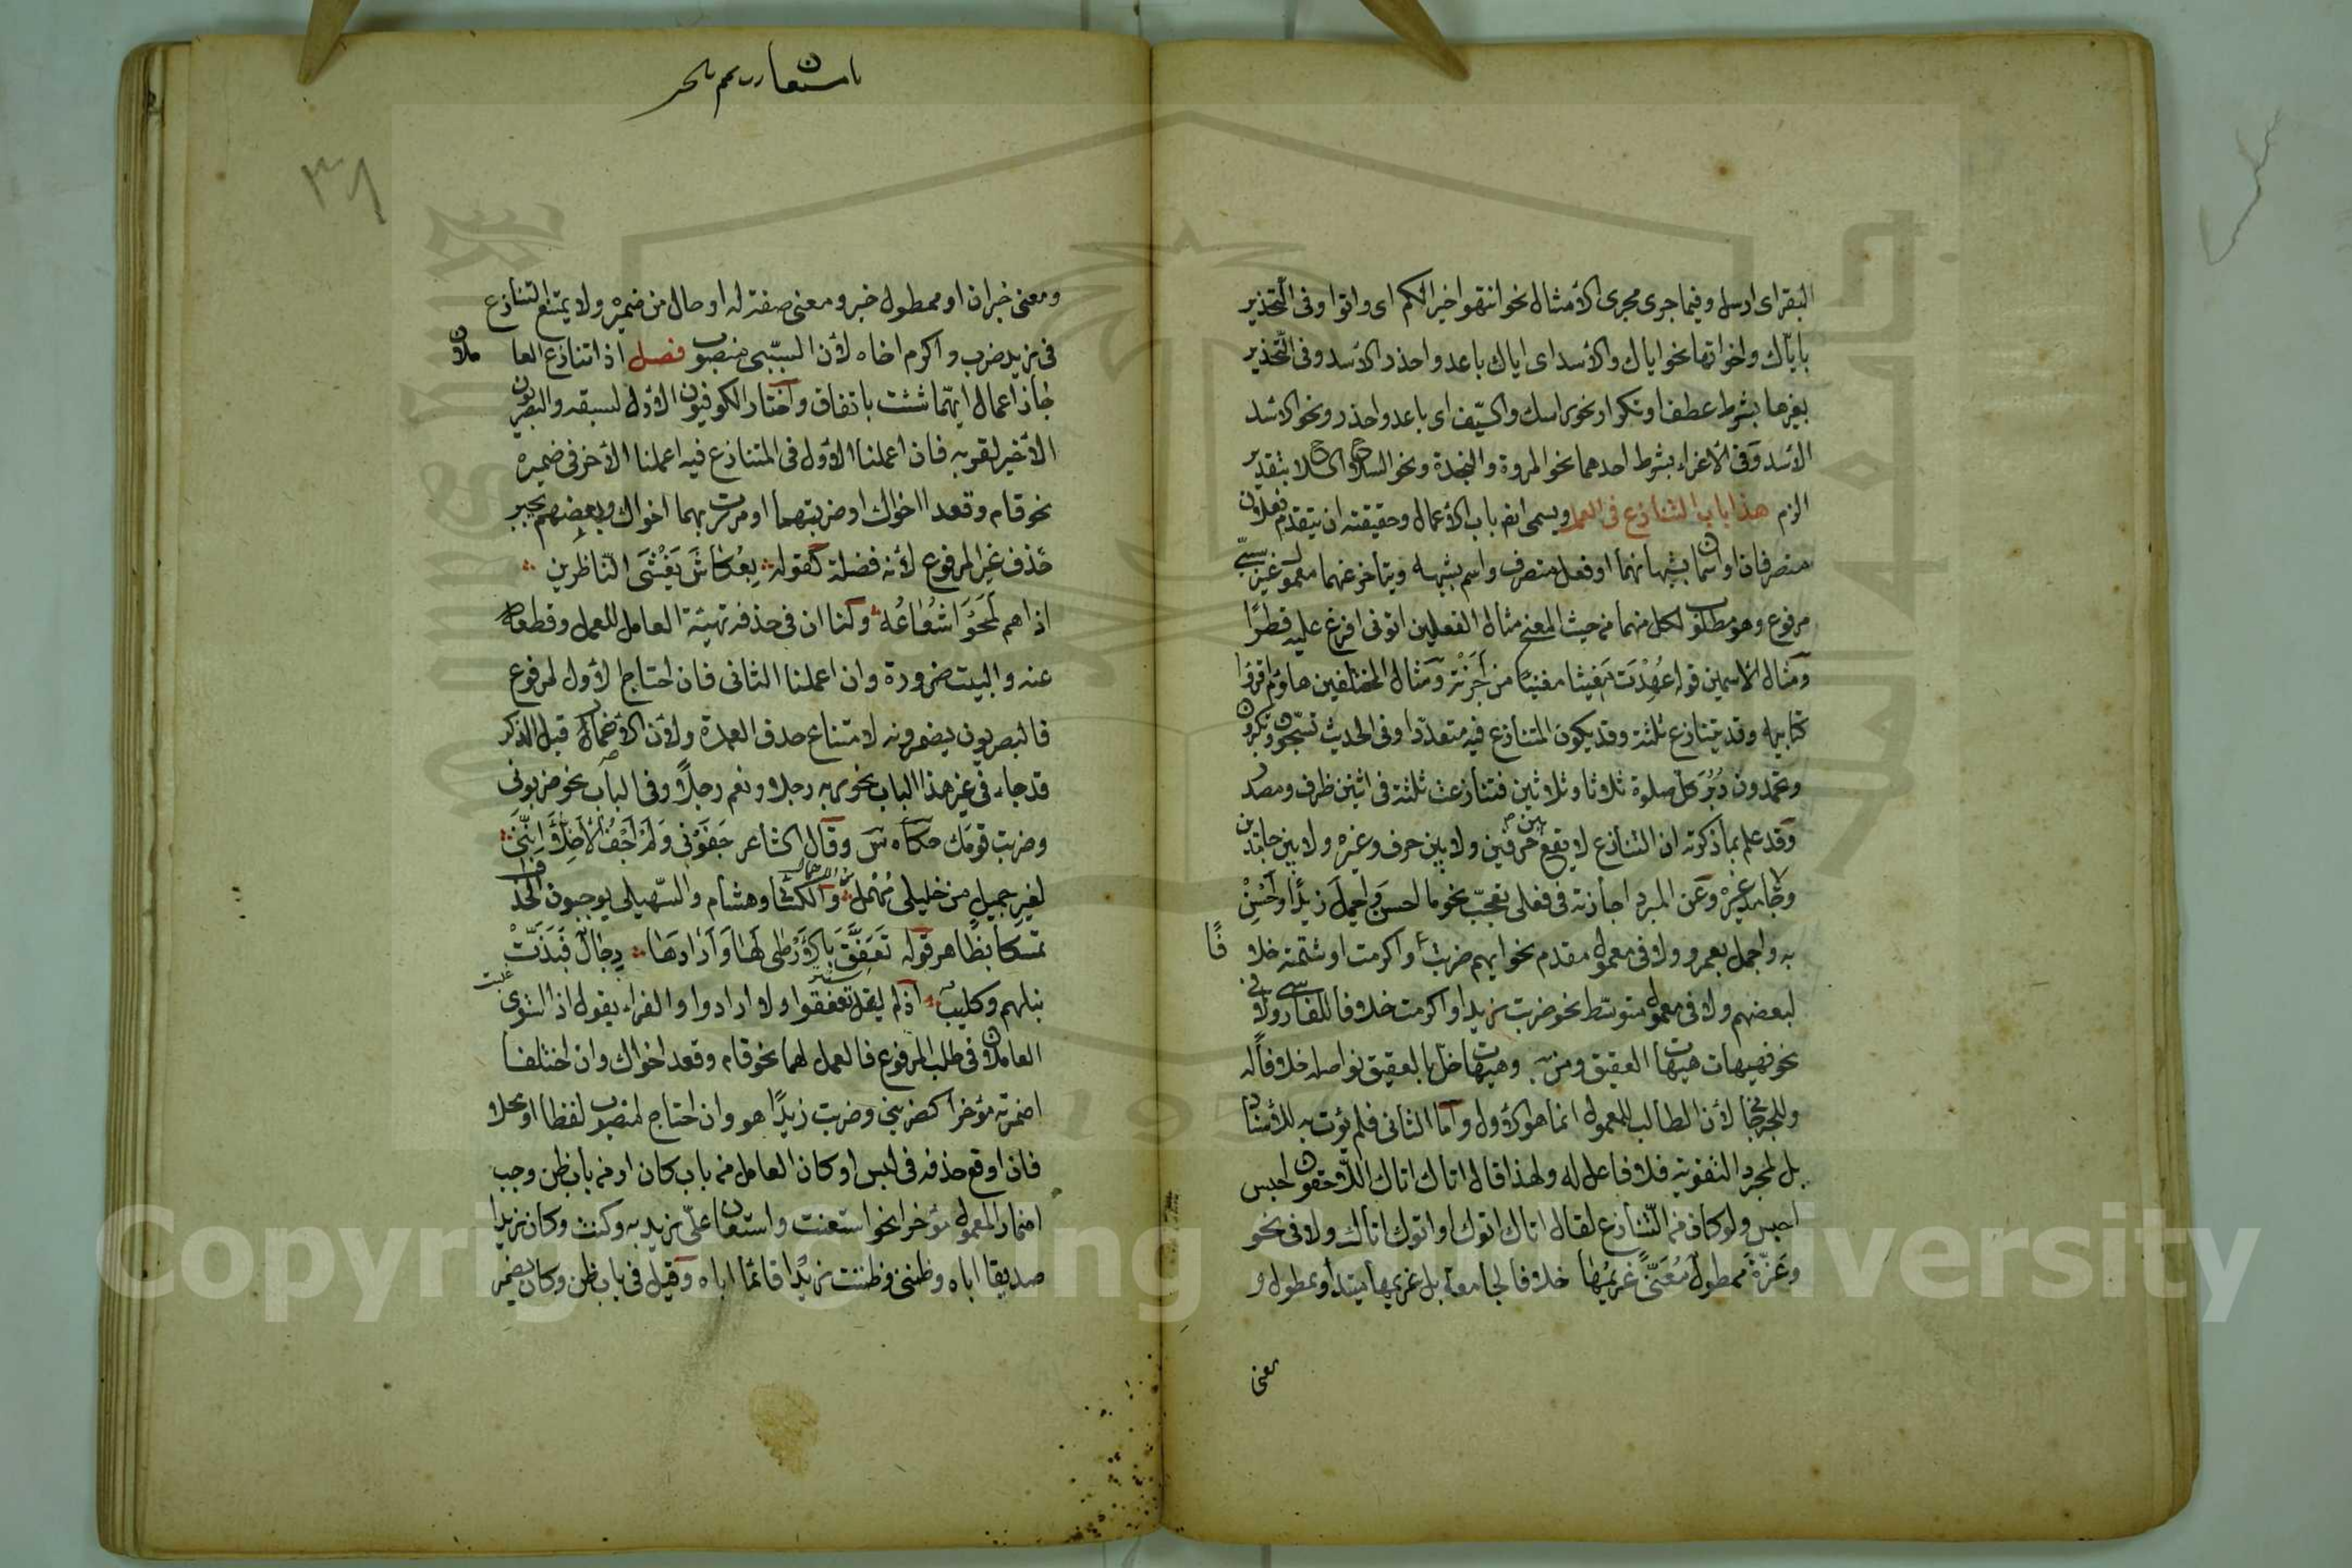 البقر اى ارسل وفيما جرى مجرى الأمثال نحو انتهوا خيرا لكم اى واتوا وفى التحذير
باياك واخواتها نحو اياك والأسد اى اياك باعد واحذر الأسد وفى التحذير
بغيرها بشرط عطف او تكرار نحو راسك والسيف اى باعد واحذر ونحو الاسد
الأسد وفى الأغراء بشرط احدهما نحو المروة والنجدة ونحو السلاح السلاح بتقدير
الزم هذا باب التنازع فى العمل ويسمى ايضا باب الأعمال وحقيقته ان يتقدم فعلان
متصرفان او اسمان يشبهانهما او فعل متصرف واسم يشبهه ويتأخر عنهما معمول غير سببى
مرفوع وهو مطلوب لكل منهما من حيث المعنى مثال الفعلين اتونى افرغ عليه قطرًا
ومثال الأسمين قوله عُهِدْتَ مُغيثا مغنيا من اَجَرْتَه ومثال المختلفين هاؤم اقرؤا
كتابيه وقد يتنازع ثلثة وقد يكون المتنازع فيه متعدّدا وفى الحديث تسبّحون وتكبرون
وتحمدون دُبُرَ كلّ صلوة ثلاثا وثلاثين فتنازعت ثلثة فى اثنين ظرف ومصدر
وقد علم بما ذكرته ان التنازع لا يقع بين حرفين ولا بين حرف وغيره ولا بين جامدين
ولا جامد وغيره وعن المبرد اجازته فى فعلى تعجّب نحو ما احسن واجمل زيدًا واَحْسِنْ
به واجمل بعمرو ولا فى معمول مقدم نحو ايهم ضربت او اكرمت او شتمته خلافًا
لبعضهم ولا فى معمول متوسّط نحو ضربت زيدا واكرمت خلافا للفارسى ولا فى
نحو فهيهات هيهات العقيق ومن به وهيهات خلّ بالعقيق نواصله خلافًا له
وللجرجانى لأن الطالب للمعمول انما هو الأول واما الثانى فلم يؤت به للأسناد
بل لمجرد التقوية فلا فاعل له ولهذا قال اتاك اتاك اللّاحقون احبس
احبس ولو كان من التّنازع لقال اتاك اتوك او اتوك اتاك ولا فى نحو
وعَزّةُ ممطولٌ مُعَنّىً غَريمُها خلافا لجامعه بل غريمها مبتدأ وممطول و
معنى
باستعار
٣٨
ومعنى خبران او ممطول خبر ومعنى صفة له او حال من ضميره ولا يمتنع التنازع
فى زيد ضرب واكرم اخاه لأن السببى منصوب فصل اذا تنازع العاملان
جاز اعمال ايهما شئت باتفاق واختار الكوفيون الأول لسبقه والبصريون
الأخير لقربه فان اعملنا الأول فى المتنازع فيه اعملنا الأخر فى ضميره
نحو قام وقعدا اخواك او ضربتهما او مررت بهما اخواك وبعضهم يجيز
حذف غير المرفوع لأنه فضلة كقوله بِعُكاظَ يَغْشَى النّاظِرين
اذا هم لَمَحُوا شُعَاعُهُ ولنا ان فى حذفه تهيئة العامل للعمل وقطعه
عنه والبيت ضرورة وان اعملنا الثانى فان احتاج الأول لمرفوع
فالبصريون يضمرونه لامتناع حذف العمدة ولأن الأضمار قبل الذكر
قد جاء فى غير هذا الباب نحو ربه رجلا ونعم رجلًا وفى الباب نحو ضربونى
وضربت قومك حكاه س وقال الشاعر جَفَوْنى وَلَمْ اَجْفُ الأَخِلَّاءَ اِنَّنِى
لغير جميلٍ من خليلى مُهْمِل وَالكسائى وهشام والسّهيلى يوجبون الحذف
تمسكا بظاهر قوله تَعَفَّقَ بِالأَرْطى لَهَا وَاَرَادَهَا رِجَالٌ فَبَذَّتْ
نبلهم وكليبُ اذ لم يقل تعفقوا ولا ارادوا والفراء يقول اذا استوى
العاملان فى طلب المرفوع فالعمل لهما نحو قام وقعد اخواك وان اختلفا
اضمرته مؤخرا كضربنى وضربت زيدًا هو وان احتاج لمنصوب لفظا او محلا
فان اوقع حذفه فى لبس او كان العامل من باب كان او من باب ظن وجب
اضمار المعمول مؤخرا نحو استعنت واستعان علىّ زيد به وكنت وكان زيدا
صديقا اياه وظننى وظننت زيدًا قائما اياه وقيل فى باب ظن وكان يضمر